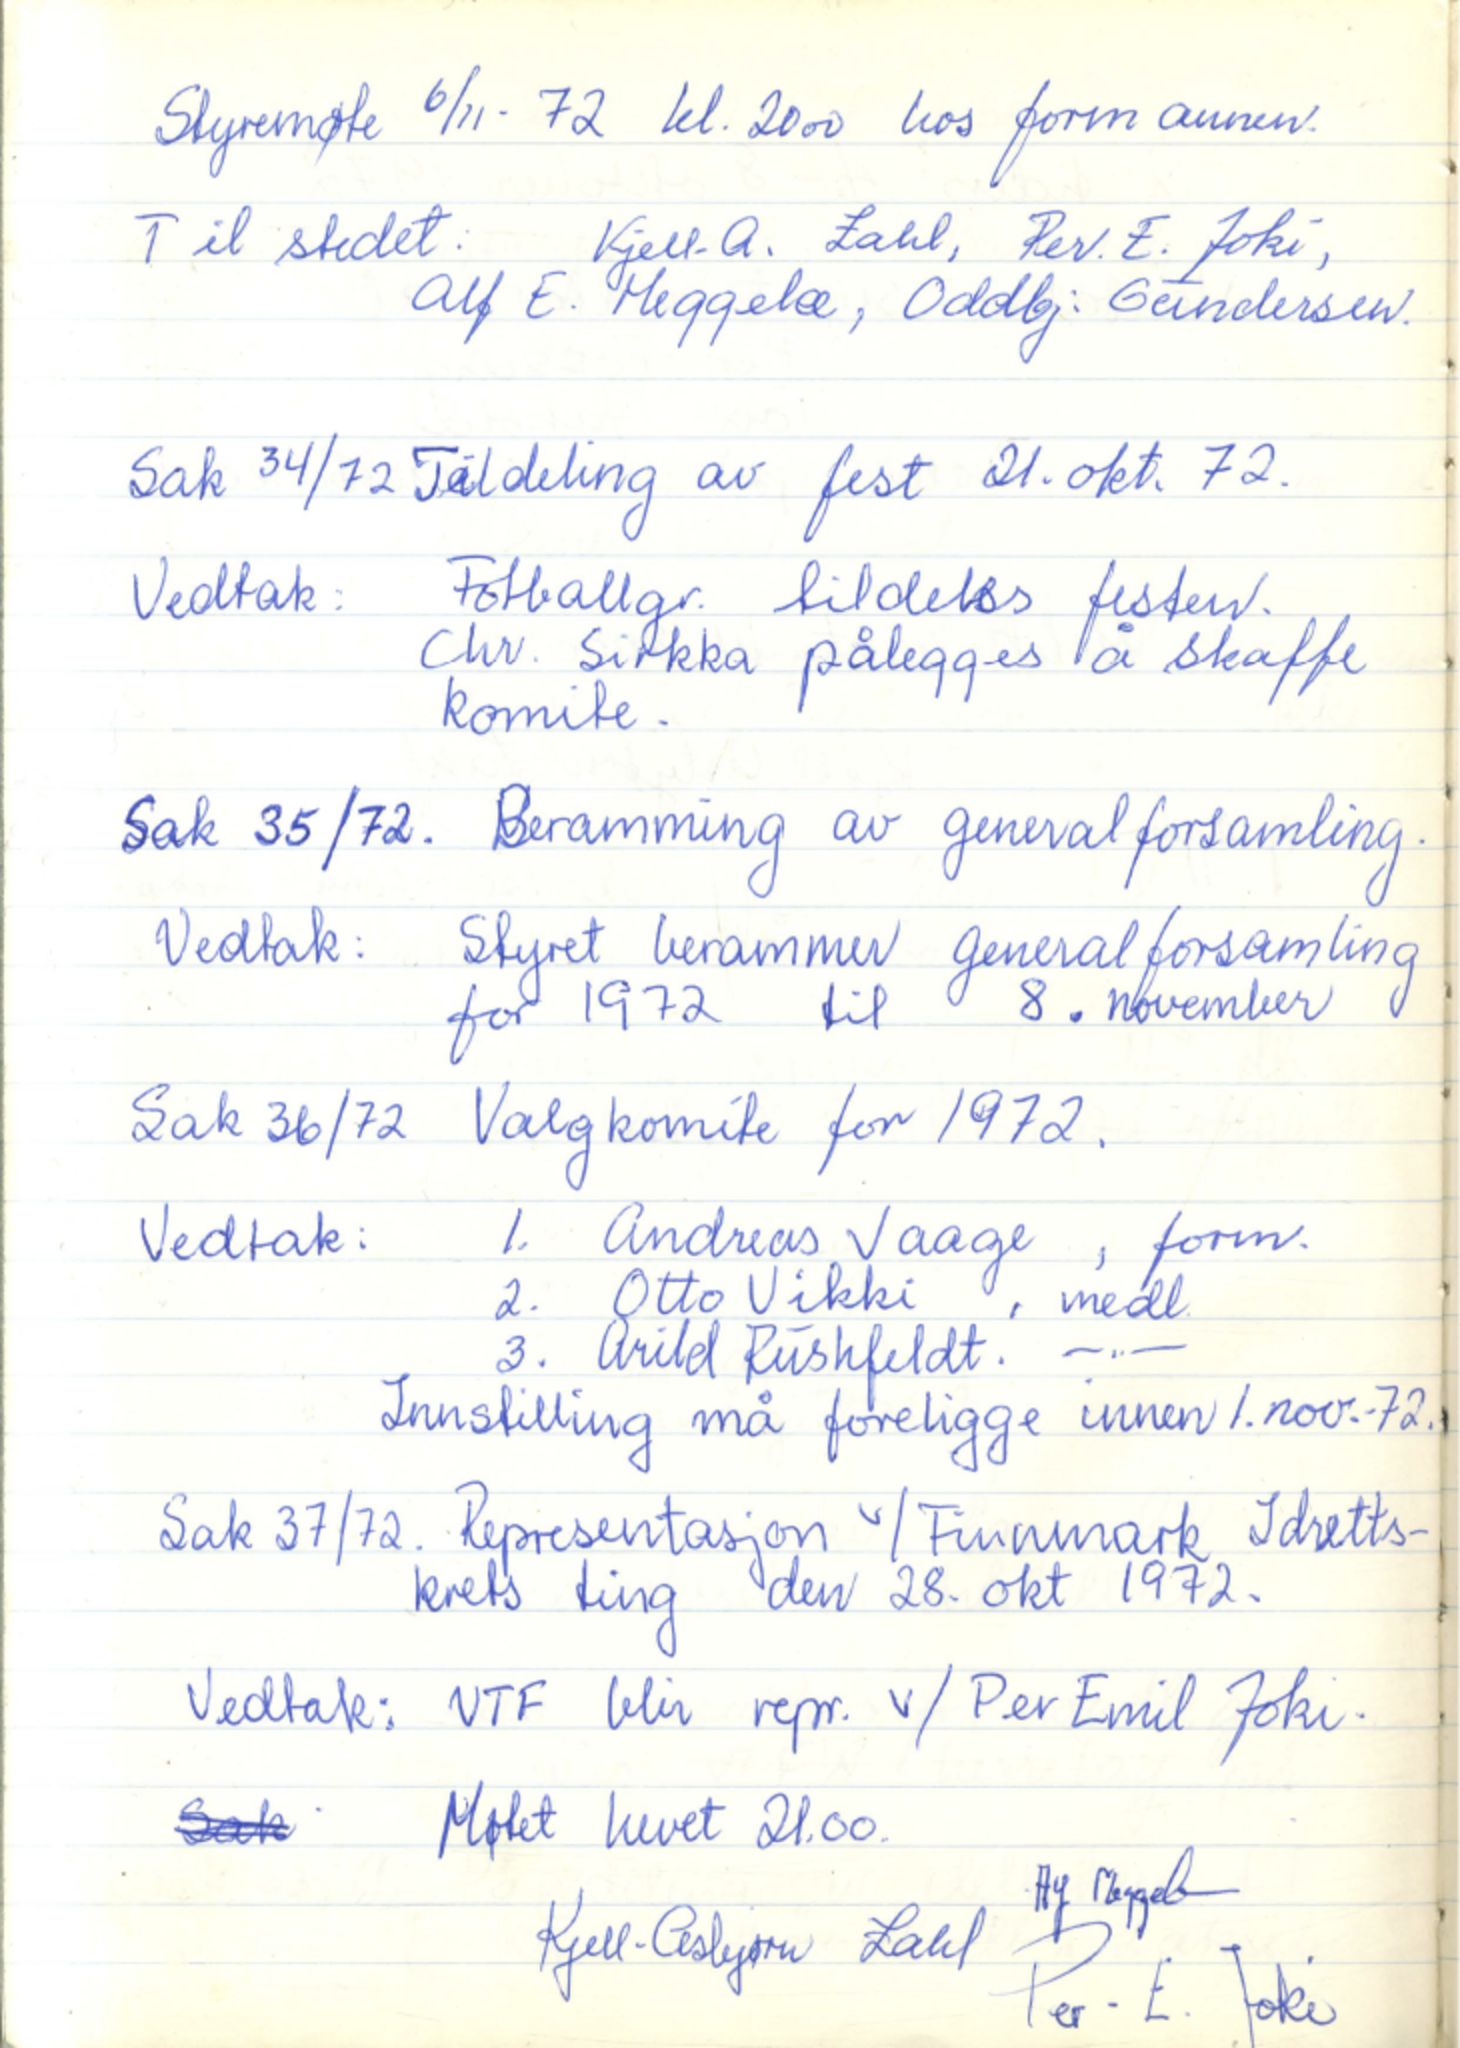 Styremøte 6/11-72 kl. 2000 hos formannen.
Til stedet: Kjell-A. Zahl, Per. E. Joki,
Alf E. Meggelæ, Oddbj: Gundersen.
Sak 34/72 Tildeling av fest 21. okt. 72.
Vedtak: Fotballgr. tildeles festen.
Chr. Sirkka pålegges å skaffe
komite.
Sak 35/72. Beramming av generalforsamling.
Vedtak: Styret berammer generalforsamling
for 1972 til 8. november
Sak 36/72 Valgkomite for 1972.
Vedtak: 1. Andreas Vaage, form.
2. Otto Vikki, medl.
3. Arild Rushfeldt. —"—
Innstilling må foreligge innen 1. nov.-72.
Sak 37/72. Representasjon v/ Finnmark Idretts-
krets ting den 28. okt 1972.
Vedtak: VTF blir repr. v/ Per Emil Joki.
Sak Møtet hevet 21.00.
Alf Meggelæ
Kjell-Asbjørn Zahl
Per-E. Joki